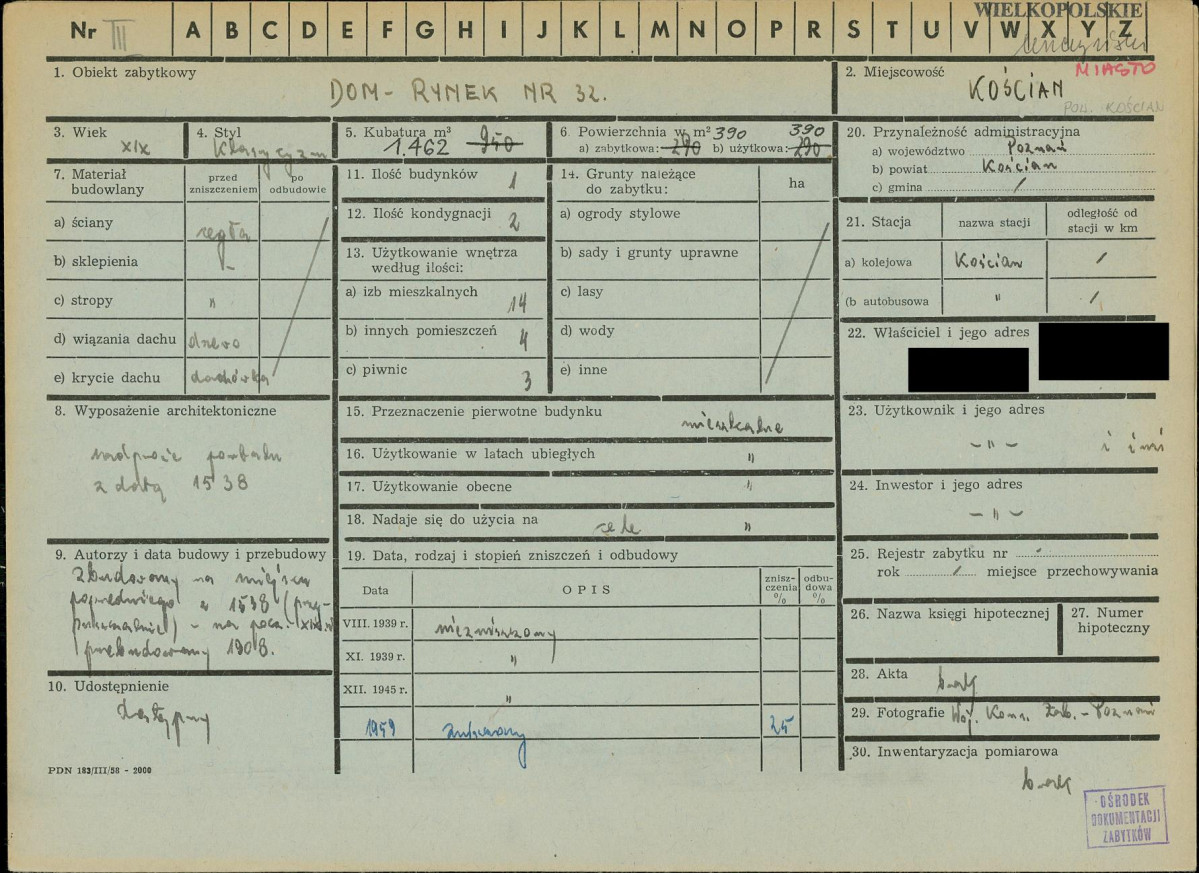 WIELKOPOLSKIE
Nr III A B C D E F G H I J K L M N O P R S T U V W X Y Z
MIASTO
1. Obiekt zabytkowy
DOM - RYNEK NR 32.
2. Miejscowość
KOŚCIAN
POW. KOŚCIAN
3. Wiek
XIX
4. Styl
Klasycyzm
5. Kubatura m³
1.462 950
6. Powierzchnia w m² 390 390
a) zabytkowa: 290 b) użytkowa: 290
20. Przynależność administracyjna
a) województwo Poznań
b) powiat Kościan
c) gmina /
7. Materiał budowlany
przed zniszczeniem
po odbudowie
a) ściany cegła
b) sklepienia -
c) stropy "
d) wiązania dachu drewno
e) krycie dachu dachówka
11. Ilość budynków 1
12. Ilość kondygnacji 2
13. Użytkowanie wnętrza
według ilości:
a) izb mieszkalnych 14
b) innych pomieszczeń 4
c) piwnic 3
14. Grunty należące
do zabytku:
ha
a) ogrody stylowe
b) sady i grunty uprawne
c) lasy
d) wody
e) inne
21. Stacja
nazwa stacji
odległość od
stacji w km
a) kolejowa Kościan /
(b autobusowa " /
22. Właściciel i jego adres
8. Wyposażenie architektoniczne
nadproże portalu
z datą 1538
15. Przeznaczenie pierwotne budynku mieszkalne
16. Użytkowanie w latach ubiegłych "
17. Użytkowanie obecne "
18. Nadaje się do użycia na cele "
23. Użytkownik i jego adres
-"- i inni
24. Inwestor i jego adres
-"-
9. Autorzy i data budowy i przebudowy
Zbudowany na miejscu
poprzedniego z 1538 (przy-
puszczalnie) - na pocz. XIX w
przebudowany 1908.
19. Data, rodzaj i stopień zniszczeń i odbudowy
Data
OPIS
znisz-
czenia
%
odbu-
dowa
%
VIII. 1939 r. niezniszczony
XI. 1939 r. "
XII. 1945 r. "
1959 25
25. Rejestr zabytku nr /
rok / miejsce przechowywania
26. Nazwa księgi hipotecznej
27. Numer
hipoteczny
28. Akta brak
29. Fotografie Woj. Kons. Zab. - Poznań
30. Inwentaryzacja pomiarowa
brak
10. Udostępnienie
dostępny
PDN 183/III/58 - 2000
OŚRODEK
DOKUMENTACJI
ZABYTKÓW